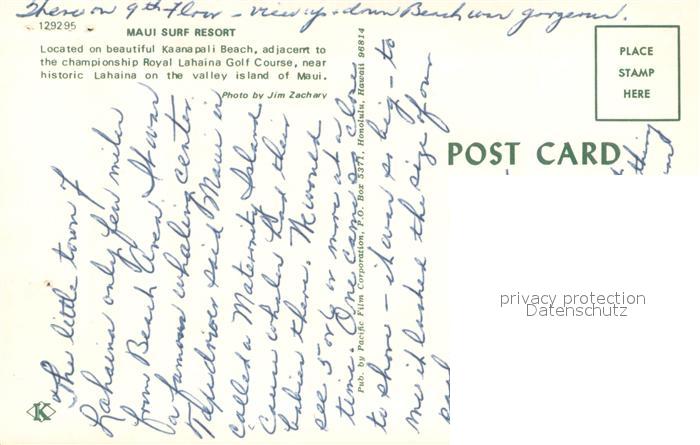 There on 9th floor - view up & down Beach was gorgeous.
129295
MAUI SURF RESORT
Located on beautiful Kaanapali Beach, adjacent to
the championship Royal Lahaina Golf Course, near
historic Lahaina on the valley island of Maui.
Photo by Jim Zachary
Pub. by Pacific Film Corporation, P.O. Box 5371, Honolulu, Hawaii 96814
PLACE
STAMP
HERE
POST CARD
The little town of
Lahaina only few miles
from Beach Area. It was
a famous whaling center.
Taxi driver said Maui is
called a Maternity Island
Cause whales had their
babies there. We would
see 5 or 6 or more at a
time. One came so close
to shore - it was so big - to
me it looked the size of our
thing
K
privacy protection
Datenschutz